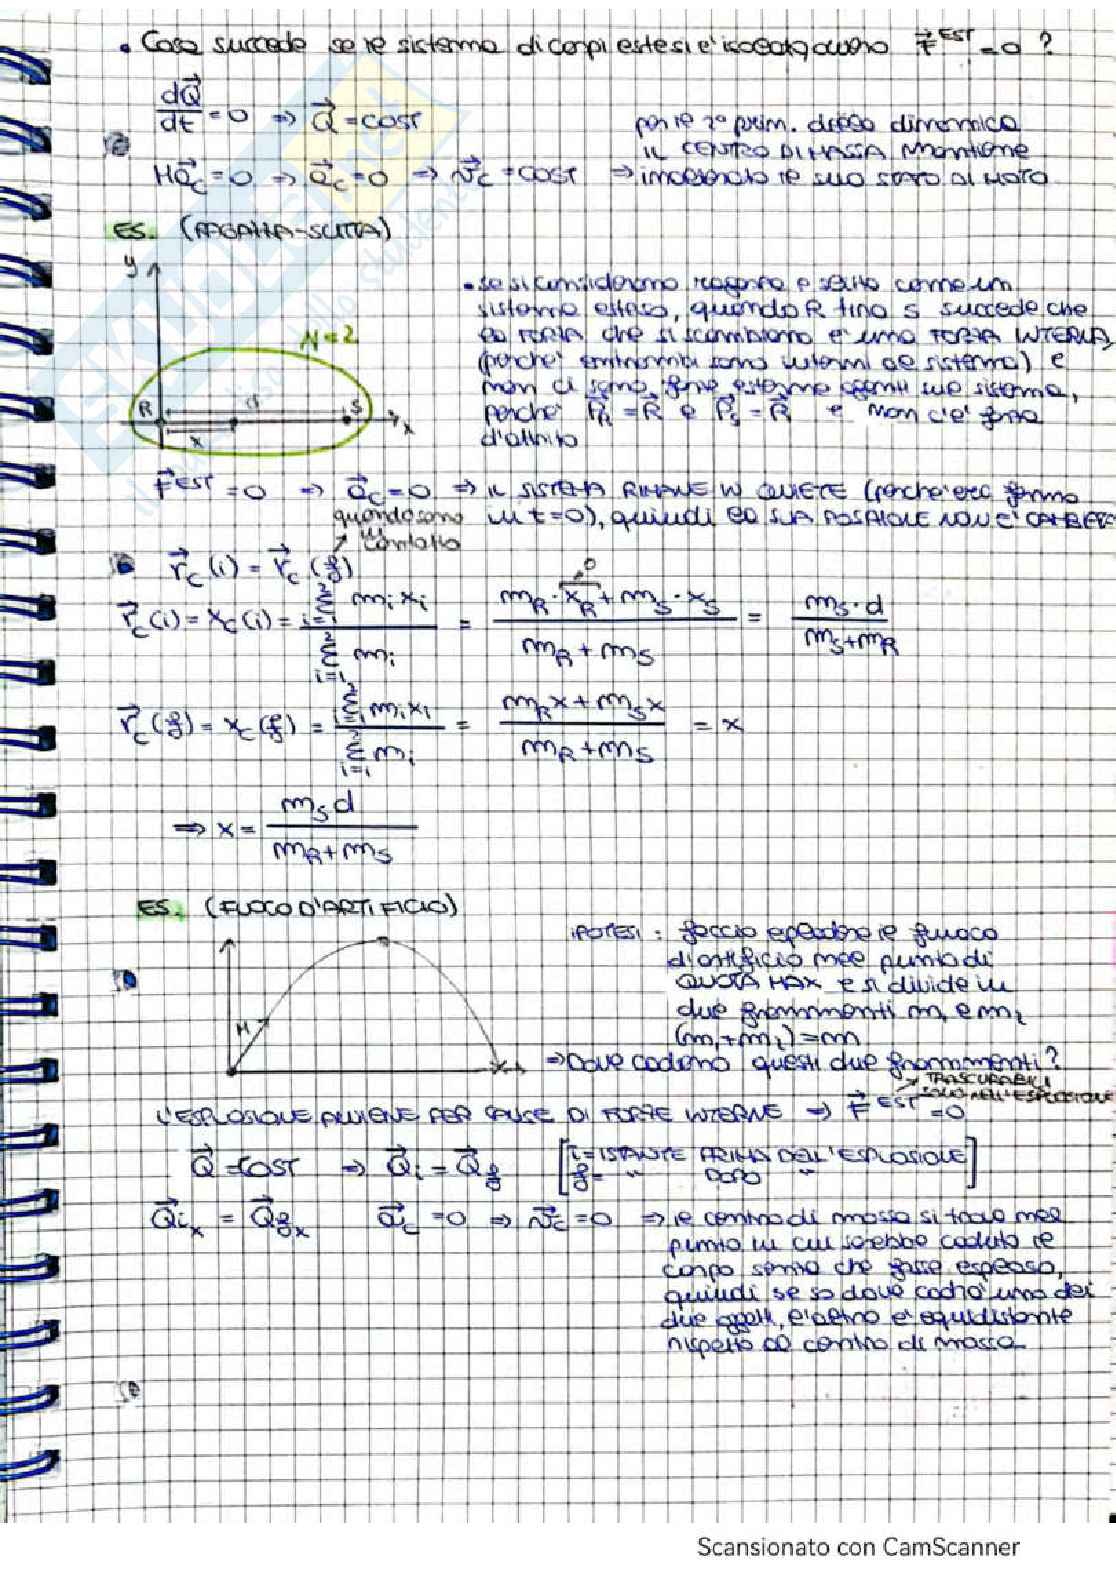 • Cosa succede se il sistema di corpi estesi è isolato, ovvero F^EST = 0 ?
dQ/dt = 0 ⇒ Q = COST
per il 2° prim. della dinamica
IL CENTRO DI MASSA mantiene
Ma_C = 0 ⇒ a_C = 0 ⇒ v_C = COST ⇒ inalterato il suo stato di moto
ES. (RAGAZZA-SLITTA)
y
N=2
R d S
x x
• se si considerano ragazza e slitta come un
sistema esteso, quando R tira S succede che
la FORZA che si scambiano è una FORZA INTERNA,
(perché entrambi sono interni al sistema) e
non ci sono forze esterne agenti sul sistema,
perché P_R = R e P_S = R e non c'è forza
d'attrito
F^EST = 0 ⇒ a_C = 0 ⇒ IL SISTEMA RIMANE IN QUIETE (perché era fermo
in t=0), quindi la SUA POSIZIONE NON È CAMBIATA
quando sono
in
contatto
r_C(i) = r_C(f)
r_C(i) = x_C(i) = Σ_{i=1}^{2} m_i x_i / Σ_{i=1}^{2} m_i = (m_R · x_R + m_S · x_S) / (m_R + m_S) = m_S · d / (m_S + m_R)
0
r_C(f) = x_C(f) = Σ_{i=1}^{2} m_i x_i / Σ_{i=1}^{2} m_i = (m_R x + m_S x) / (m_R + m_S) = x
⇒ x = m_S d / (m_R + m_S)
ES. (FUOCO D'ARTIFICIO)
M
x
IPOTESI : faccio esplodere il fuoco
d'artificio nel punto di
QUOTA MAX e si divide in
due frammenti m_1 e m_2
(m_1 + m_2) = m
⇒ Dove cadono questi due frammenti?
TRASCURABILI
SOLO NELL'ESPLOSIONE
L'ESPLOSIONE AVVIENE PER CAUSE DI FORZE INTERNE ⇒ F^EST = 0
Q = COST ⇒ Q_i = Q_f [i = ISTANTE PRIMA DELL'ESPLOSIONE
f = " DOPO "]
Q_ix = Q_fx a_C = 0 ⇒ v_C = 0 ⇒ il centro di massa si trova nel
punto in cui sarebbe caduto il
corpo senza che fosse esploso,
quindi se so dove cadrà uno dei
due oggetti, l'altro è equidistante
rispetto al centro di massa
Scansionato con CamScanner